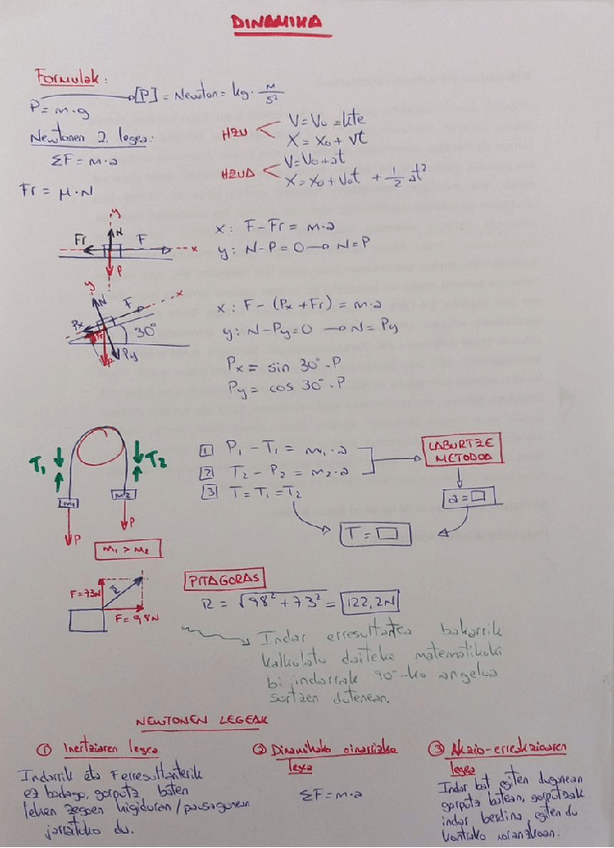 DINAMIKA
Formulak:
P = m·g → [P] = Newton = kg · m/s²
Newtonen 2. legea:
ΣF = m·a
Fr = μ·N
HZU
V = V₀ = kte
X = X₀ + vt
HZUA
V = V₀ + at
X = X₀ + V₀t + 1/2 at²
y
N
Fr
F
x
P
x: F - Fr = m·a
y: N - P = 0 → N = P
y
N
F
x
Px
Fr
30°
P
Py
x: F - (Px + Fr) = m·a
y: N - Py = 0 → N = Py
Px = sin 30°·P
Py = cos 30°·P
T₁
T₂
m₁
m₂
P
P
m₁ > m₂
1 P₁ - T₁ = m₁·a
2 T₂ - P₂ = m₂·a
3 T = T₁ = T₂
LABURTZE
METODOA
a = □
T = □
F = 73N
R
F = 98N
PITAGORAS
R = √98² + 73² = 122,2N
Indar erresultantea bakarrik
kalkulatu daiteke matematikoki
bi indarrak 90°-ko angelua
sortzen dutenean.
NEWTONEN LEGEAK
① Inertziaren legea
Indarrik eta Ferresultanterik
ez badago, gorputz baten
lehen zegoen higiduran/pausagunean
jarraituko du.
② Dinamikako oinarrizko
legea
ΣF = m·a
③ Akzio-erreakzioaren
legea
Indar bat egiten dugunean
gorputz batean, gorputzak
indar berdina egiten du
kontrako noranzkoan.